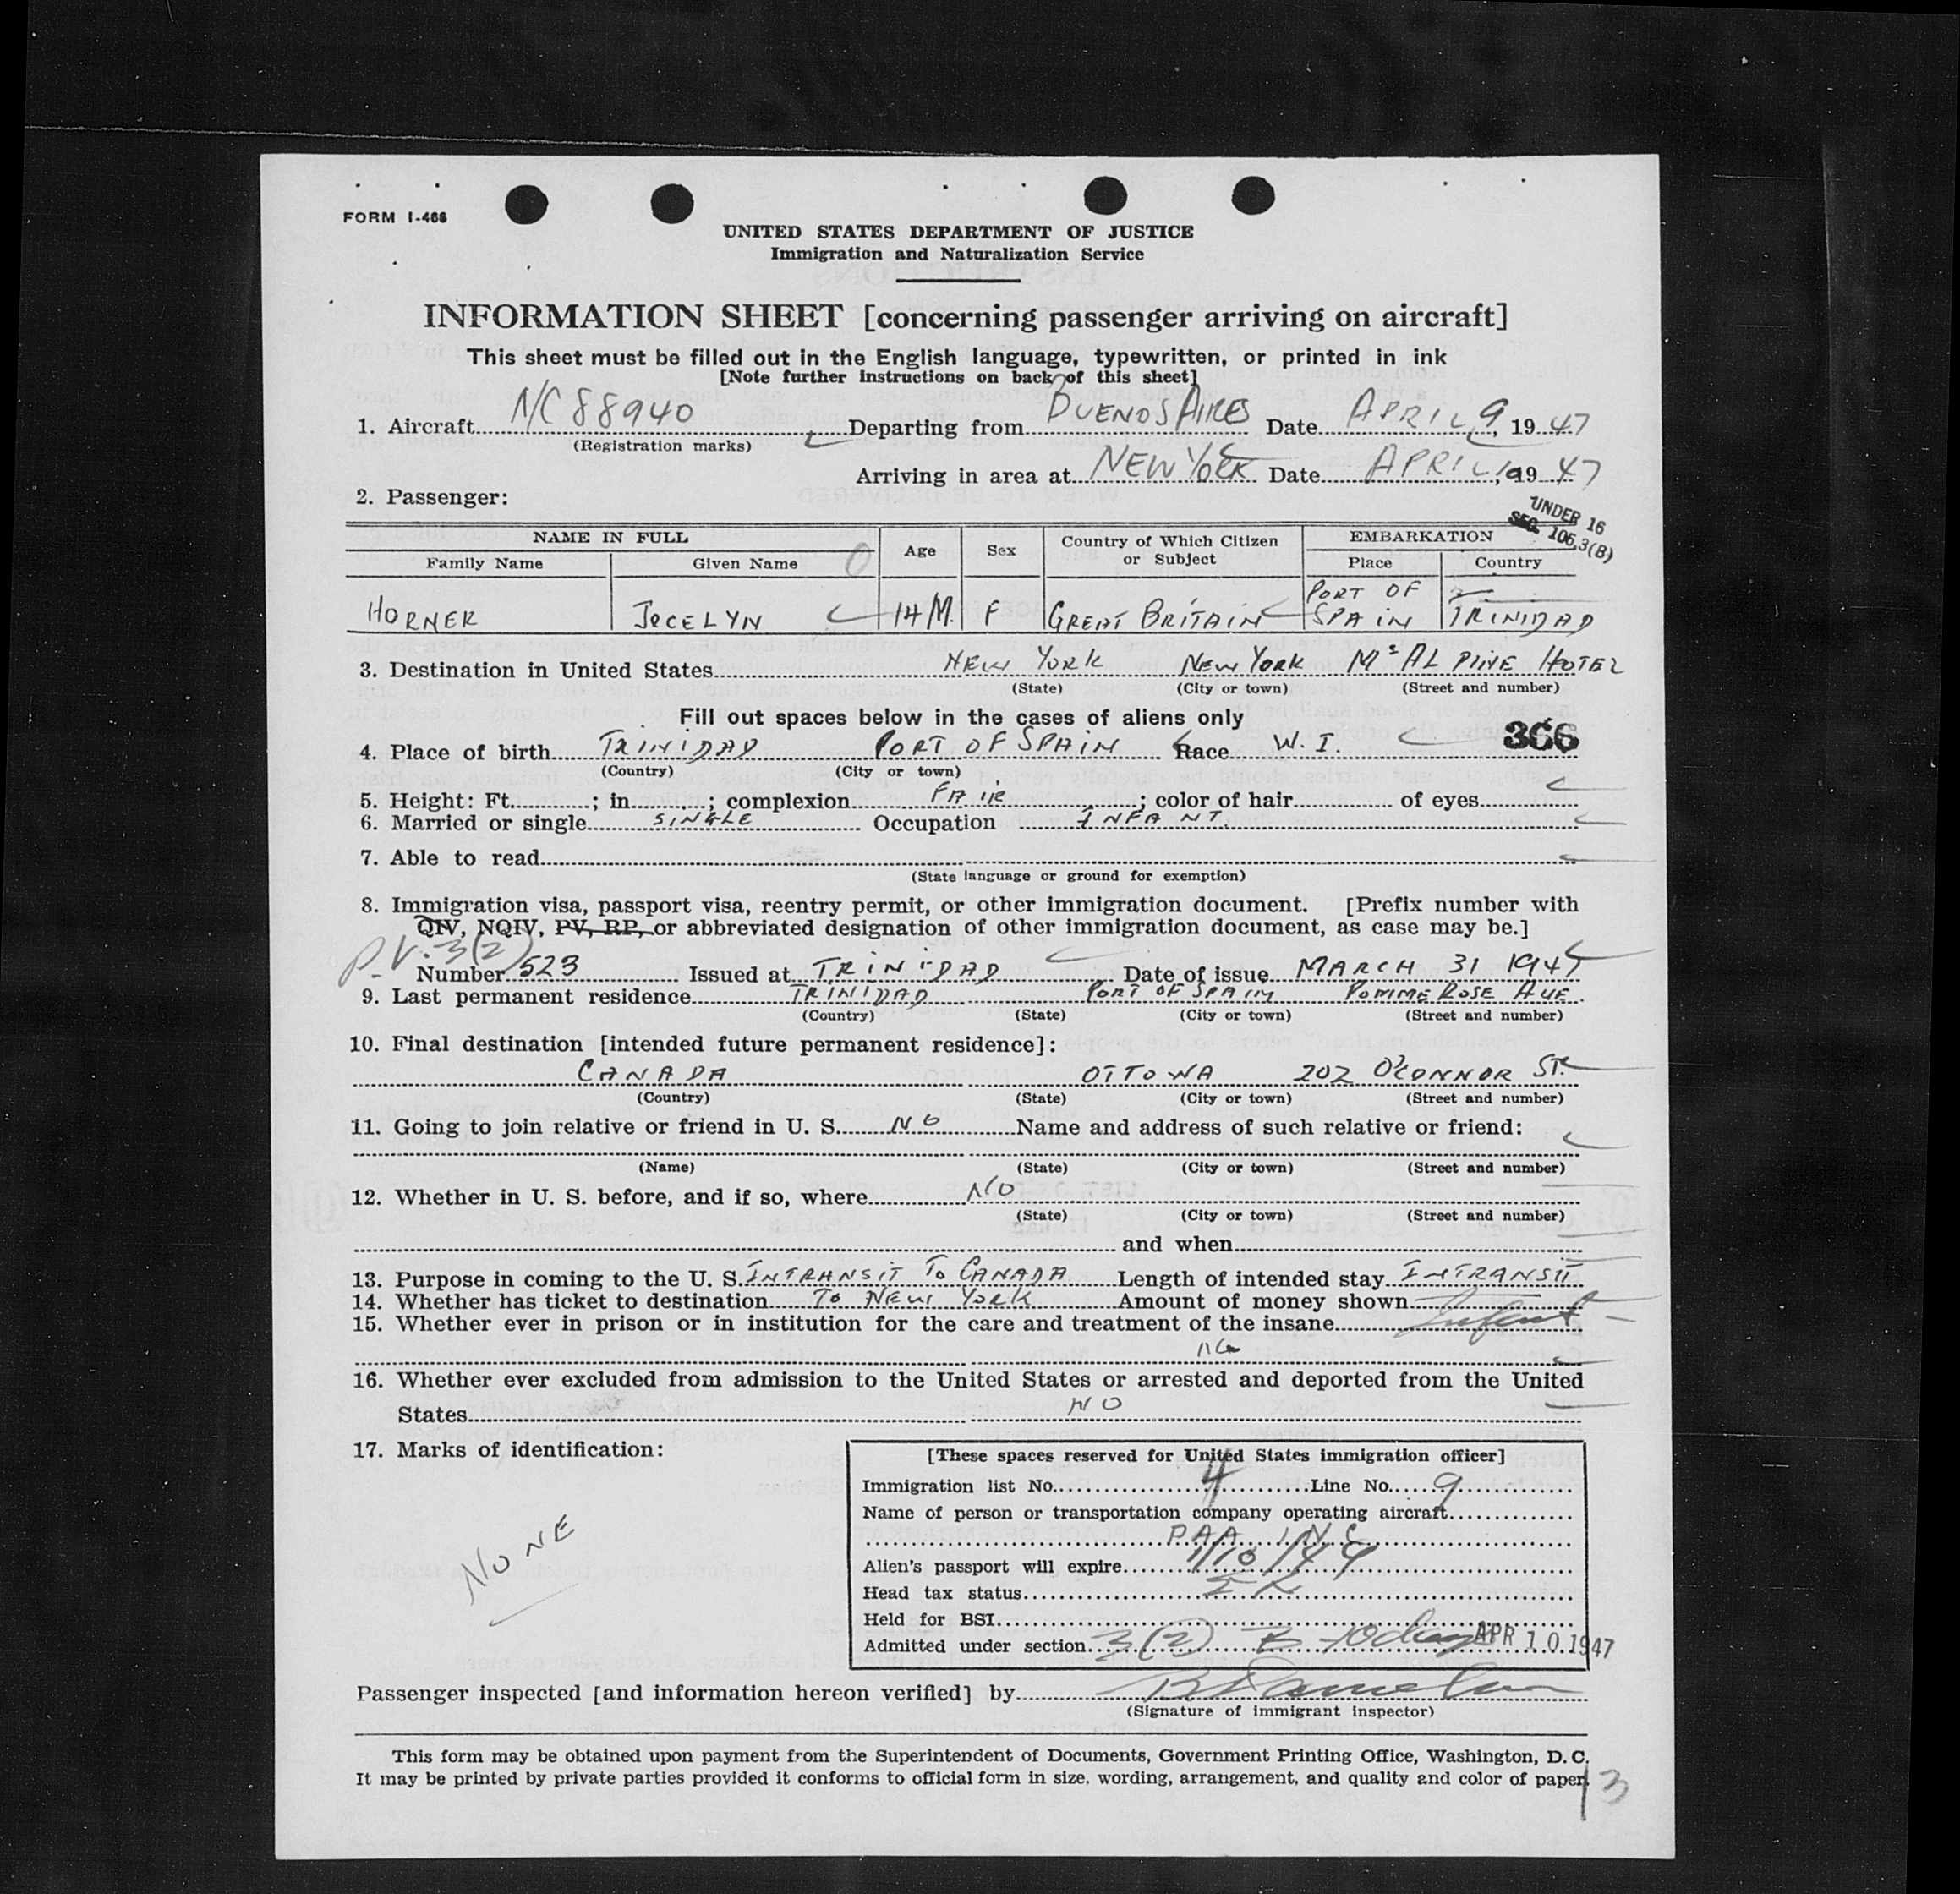 FORM I-466
UNITED STATES DEPARTMENT OF JUSTICE
Immigration and Naturalization Service
INFORMATION SHEET [concerning passenger arriving on aircraft]
This sheet must be filled out in the English language, typewritten, or printed in ink
[Note further instructions on back of this sheet]
1. Aircraft NC88940 Departing from BUENOS AIRES Date APRIL 9, 1947
(Registration marks)
Arriving in area at NEW YORK Date APRIL 10, 1947
2. Passenger:
UNDER 16
SEC. 106.3(B)
NAME IN FULL Age Sex Country of Which Citizen or Subject EMBARKATION
Family Name Given Name Place Country
HORNER JOCELYN 14/M. F GREAT BRITAIN PORT OF SPAIN TRINIDAD
3. Destination in United States NEW YORK NEW YORK Mc ALPINE HOTEL
(State) (City or town) (Street and number)
Fill out spaces below in the cases of aliens only
366
4. Place of birth TRINIDAD PORT OF SPAIN Race W. I.
(Country) (City or town)
5. Height: Ft. ; in. ; complexion FAIR ; color of hair of eyes
6. Married or single SINGLE Occupation INFANT.
7. Able to read
(State language or ground for exemption)
8. Immigration visa, passport visa, reentry permit, or other immigration document. [Prefix number with
QIV, NQIV, PV, RP, or abbreviated designation of other immigration document, as case may be.]
P.V. 3(2)
Number 523 Issued at TRINIDAD Date of issue MARCH 31 1947
9. Last permanent residence TRINIDAD PORT OF SPAIN POMME ROSE AVE.
(Country) (State) (City or town) (Street and number)
10. Final destination [intended future permanent residence]:
CANADA OTTOWA 202 O'CONNOR ST.
(Country) (State) (City or town) (Street and number)
11. Going to join relative or friend in U. S. NO Name and address of such relative or friend:
(Name) (State) (City or town) (Street and number)
12. Whether in U. S. before, and if so, where NO
(State) (City or town) (Street and number)
and when
13. Purpose in coming to the U. S. INTRANSIT TO CANADA Length of intended stay INTRANSIT
14. Whether has ticket to destination TO NEW YORK Amount of money shown Infant
15. Whether ever in prison or in institution for the care and treatment of the insane
NO
16. Whether ever excluded from admission to the United States or arrested and deported from the United
States NO
17. Marks of identification:
NONE
[These spaces reserved for United States immigration officer]
Immigration list No. 4 Line No. 9
Name of person or transportation company operating aircraft
PAA INC
Alien's passport will expire
Head tax status
Held for BSI
Admitted under section 3(2) 10 days APR 10 1947
Passenger inspected [and information hereon verified] by
(Signature of immigrant inspector)
This form may be obtained upon payment from the Superintendent of Documents, Government Printing Office, Washington, D. C.
It may be printed by private parties provided it conforms to official form in size, wording, arrangement, and quality and color of paper.
13